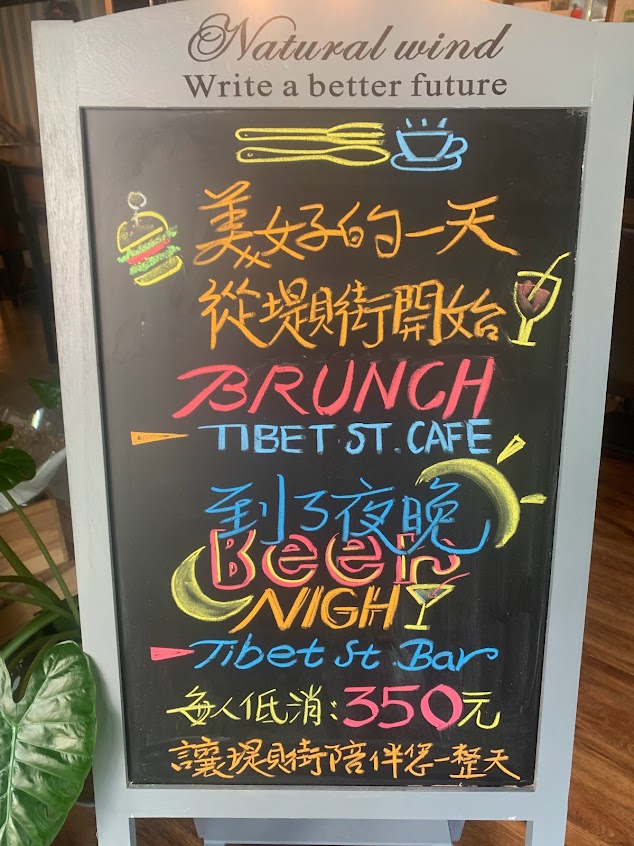 Natural wind
Write a better future
美好的一天
從堤貝街開始
BRUNCH
TIBET ST. CAFE
到了夜晚
Beer
NIGH
Tibet St. Bar
每人低消:350元
讓堤貝街陪伴您一整天